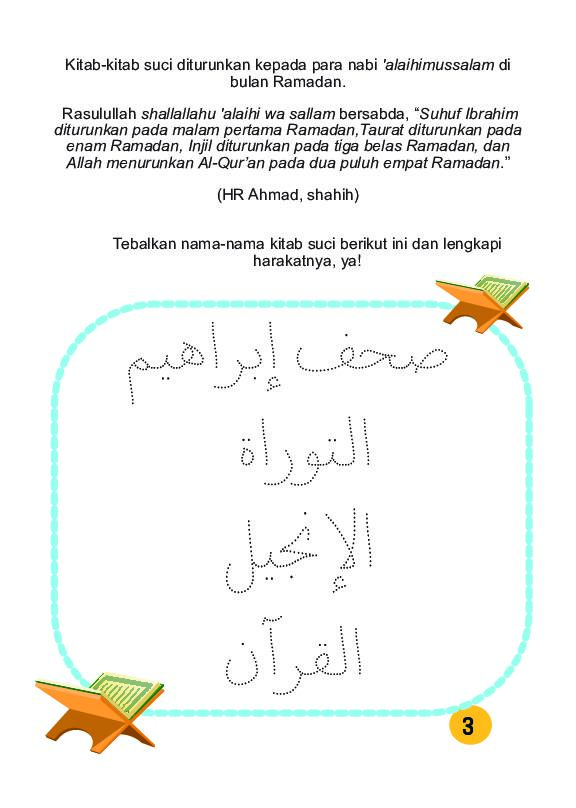 Kitab-kitab suci diturunkan kepada para nabi 'alaihimussalam di
bulan Ramadan.
Rasulullah shallallahu 'alaihi wa sallam bersabda, “Suhuf Ibrahim
diturunkan pada malam pertama Ramadan,Taurat diturunkan pada
enam Ramadan, Injil diturunkan pada tiga belas Ramadan, dan
Allah menurunkan Al-Qur’an pada dua puluh empat Ramadan.”
(HR Ahmad, shahih)
Tebalkan nama-nama kitab suci berikut ini dan lengkapi
harakatnya, ya!
صحف إبراهيم
التوراة
الإنجيل
القرآن
3